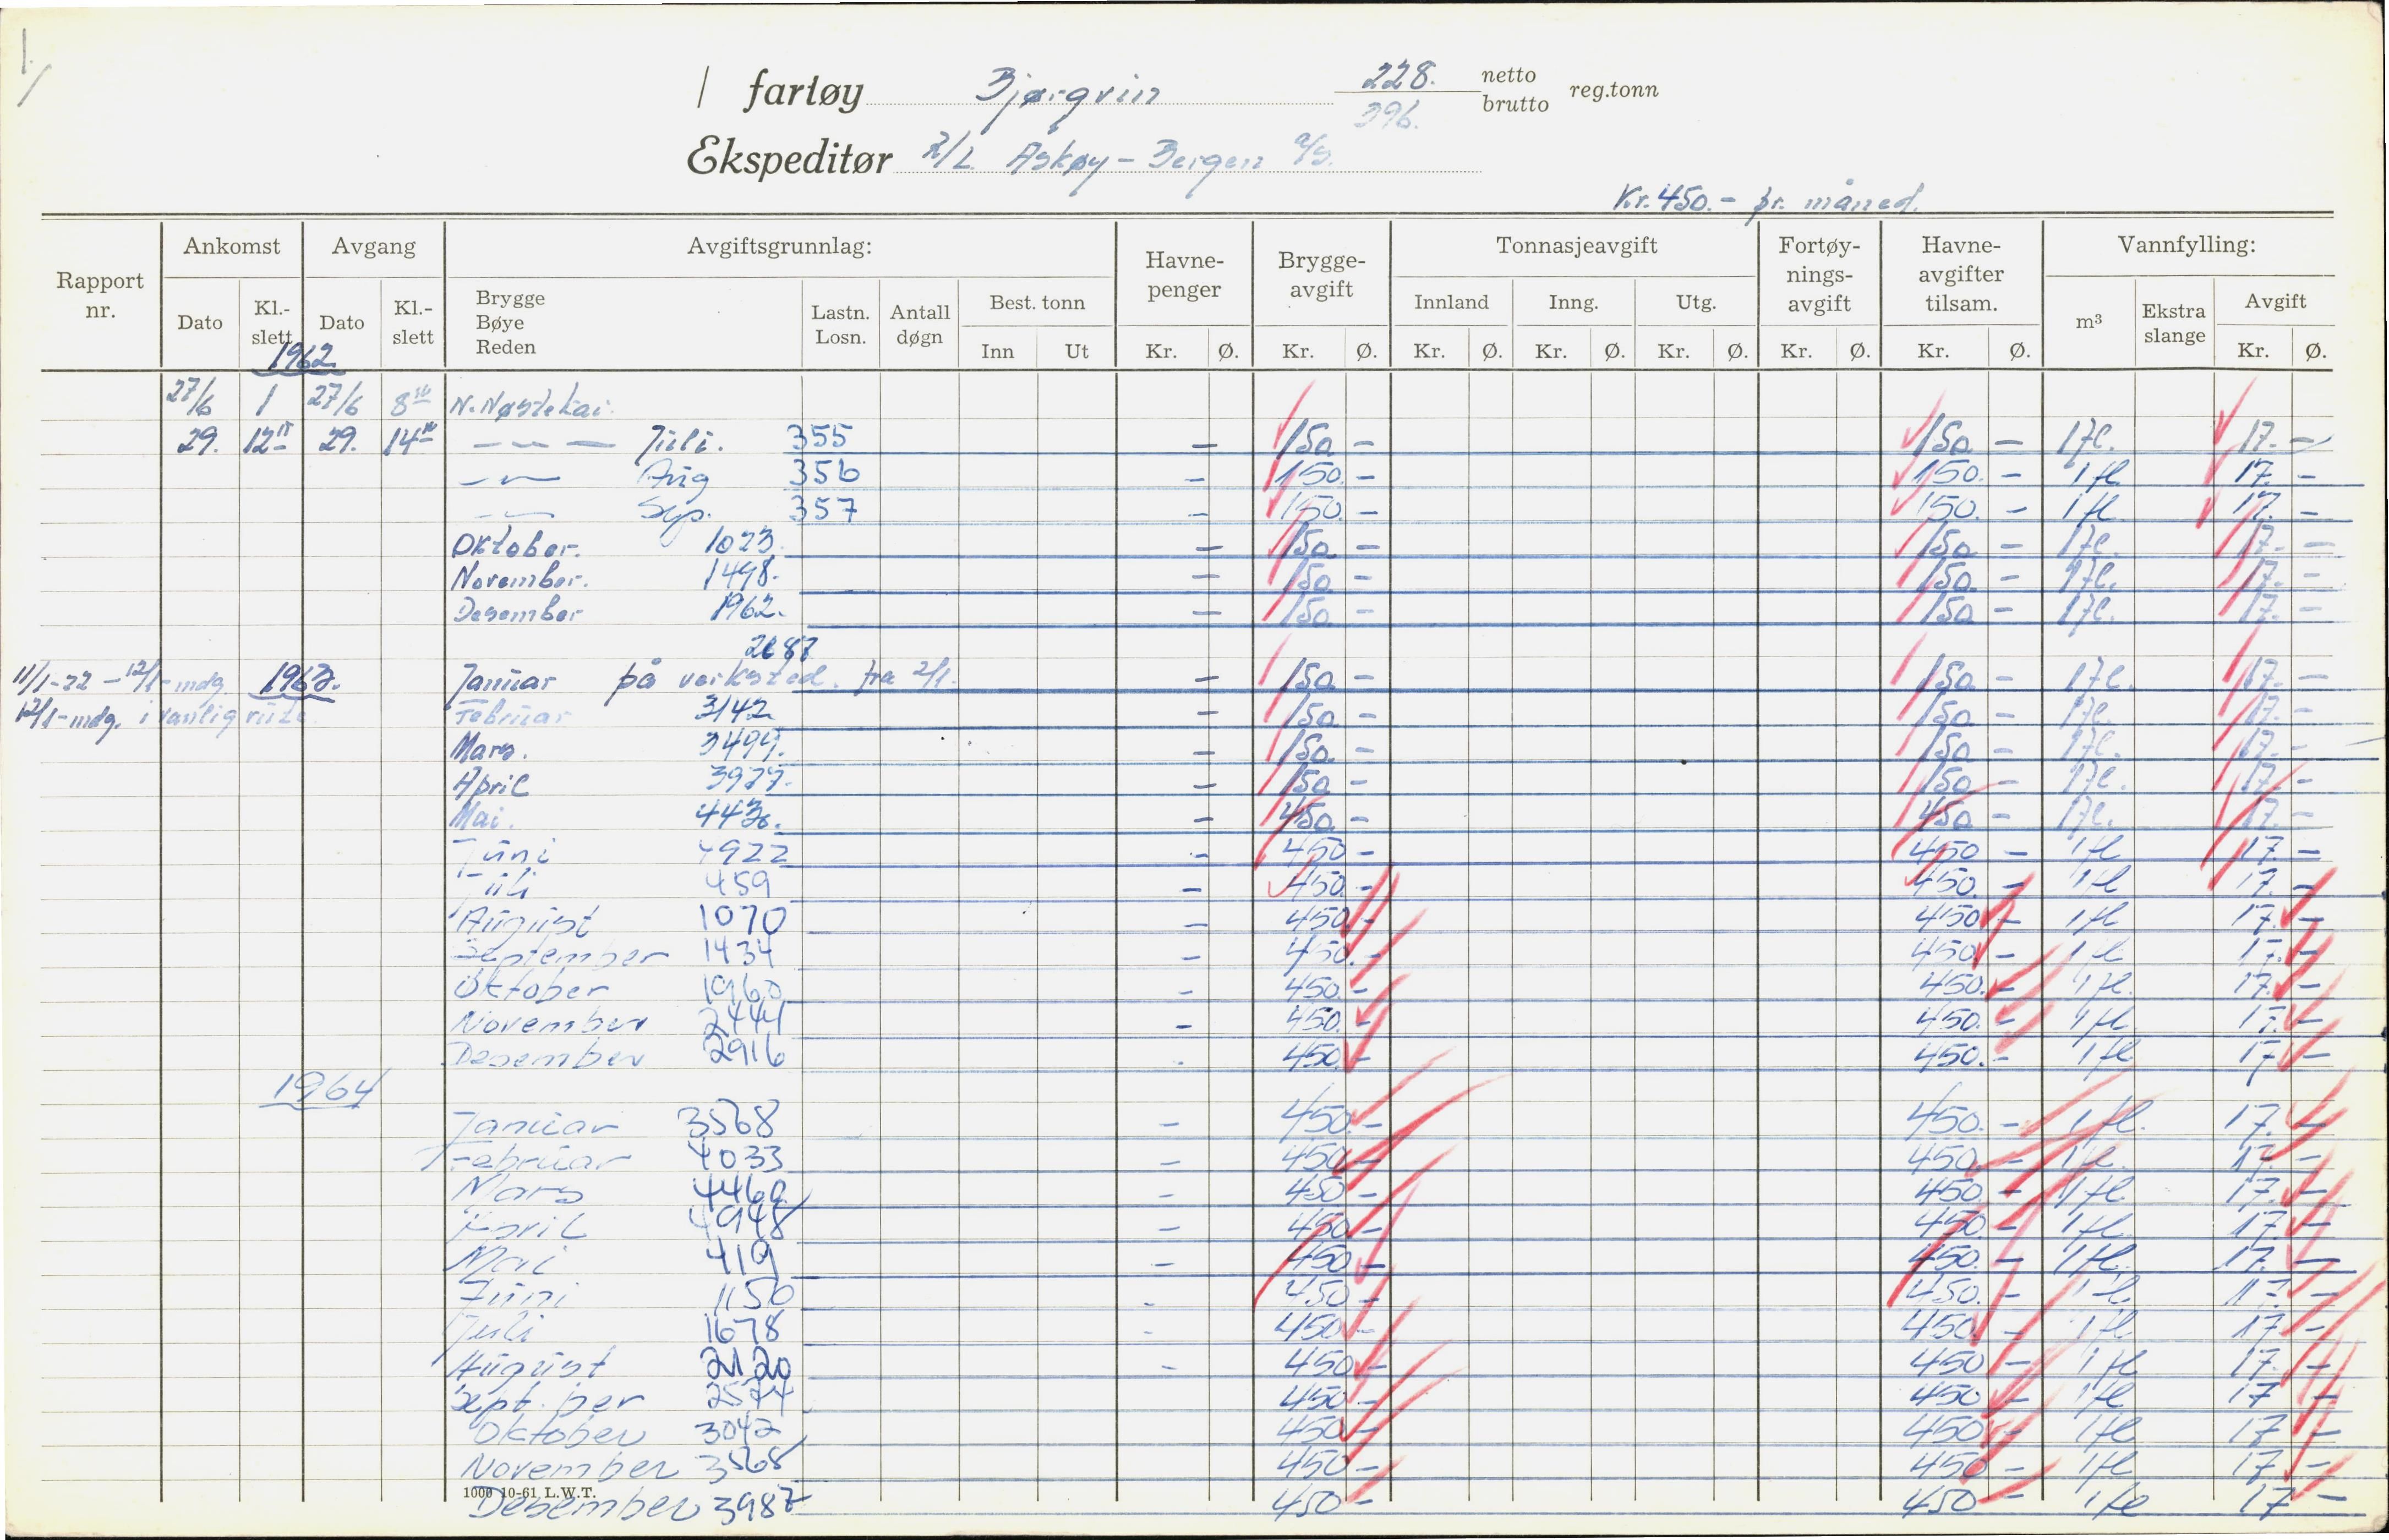 1/
/ fartøy Bjørgvin 228. netto
396. brutto reg.tonn
Ekspeditør R/L Askøy - Bergen a/s.
Kr. 450.- pr. måned.
Rapport nr. Ankomst Avgang Avgiftsgrunnlag: Havne-penger Brygge-avgift Tonnasjeavgift Fortøy-nings-avgift Havne-avgifter tilsam. Vannfylling:
Dato Kl.-slett Dato Kl.-slett Brygge Bøye Reden Lastn. Losn. Antall døgn Best. tonn Innland Inng. Utg. m³ Ekstra slange Avgift
Inn Ut Kr. Ø. Kr. Ø. Kr. Ø. Kr. Ø. Kr. Ø. Kr. Ø. Kr. Ø. Kr. Ø.
1962
27/6 1 27/6 8 N. Nøstekai.
29. 12 29. 14 — — — Juli. 355 — 150 - 150 - 1 fl. 17. -
— — Aug 356 - 150. - 150. - 1 fl 17. -
— — Sep. 357 - 150. - 150. - 1 fl 17. -
Oktober. 1023. — 150 - 150 - 1 fl. 17. -
November. 1498. — 150. - 150. - 1 fl. 17. -
Desember 1962. — 150. - 150 - 1 fl. 17. -
2687
11/1-22 - 12/1-mdg. 1963. Januar på verksted. fra 2/1. — 150. - 150 - 1 fl. 17. -
12/1-mdg. i vanlig rute. Februar 3142 — 150. - 150 - 1 fl. 17. -
Mars. 3499. — 150. - 150 - 1 fl. 17. -
April 3977. — 150 - 150 - 1 fl. 17. -
Mai. 4430. — 450. - 450 - 1 fl. 17. -
Juni 4922 - 450 - 450 - 1 fl 17. -
Juli 459 - 450. - 450. - 1 fl 17. -
August 1070 - 450 - 450 - 1 fl 17. -
September 1434 - 450. - 450. - 1 fl 17. -
Oktober 1960 - 450. - 450. - 1 fl. 17. -
November 2441 - 450. - 450. - 1 fl 17. -
Desember 2916 - 450. - 450. - 1 fl 17 -
1964
Januar 3568 - 450. - 450. - 1 fl. 17. -
Februar 4033 - 450 - 450. - 1 fl. 17. -
Mars 4460 - 450 - 450. - 1 fl. 17. -
April 4948 - 450 - 450. - 1 fl. 17. -
Mai 419 - 450 - 450. - 1 fl. 17. -
Juni 1150 - 450 - 450. - 1 fl. 17. -
Juli 1678 - 450 - 450 - 1 fl 17 -
August 2120 - 450 - 450 - 1 fl 17. -
Sept.ber 2574 450 - 450 - 1 fl 17 -
Oktober 3042 450 - 450 - 1 fl 17 -
November 3568 450 - 450 - 1 fl 17 -
1000 10-61 L.W.T.
Desember 3987 450 - 450 - 1 fl 17 -